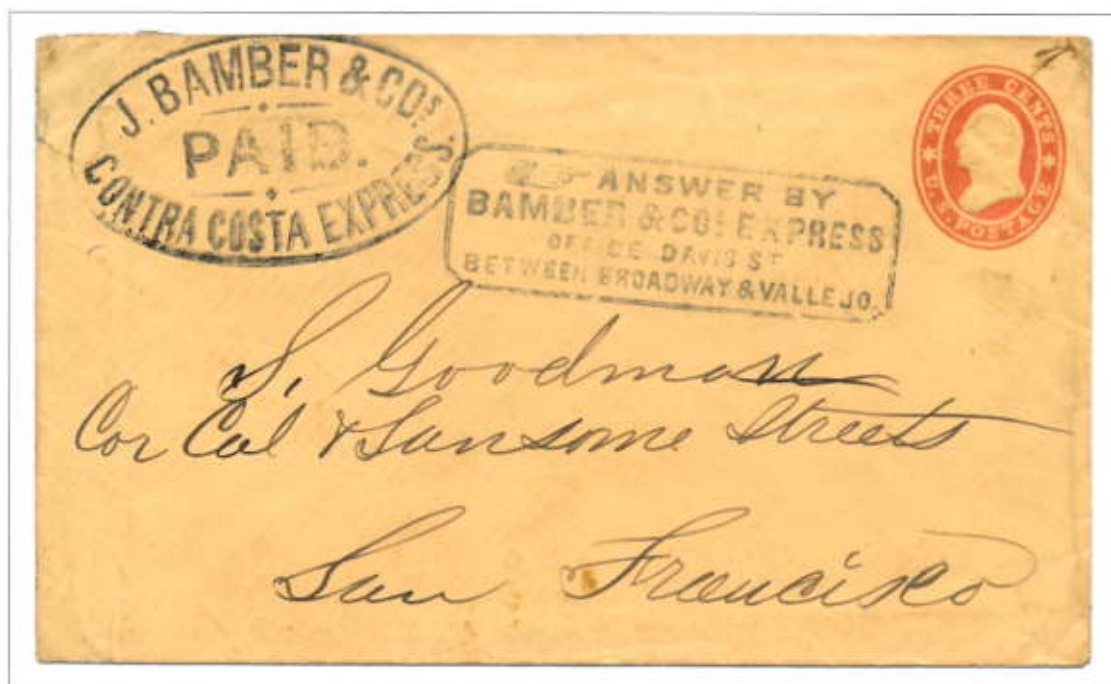 J. BAMBER & COs.
PAID.
CONTRA COSTA EXPRESS.
ANSWER BY
BAMBER & COs. EXPRESS
OFFICE DAVIS ST
BETWEEN BROADWAY & VALLEJO.
THREE CENTS
U.S. POSTAGE
S. Goodman
Cor Cal & Sansome Streets
San Francisco